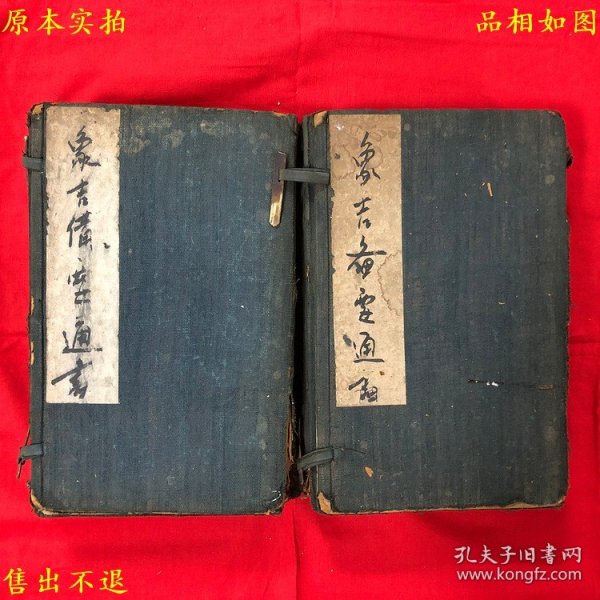 原本实拍
品相如图
象吉備要通書
象吉备要通书
售出不退
孔夫子旧书网
www.kongfz.com